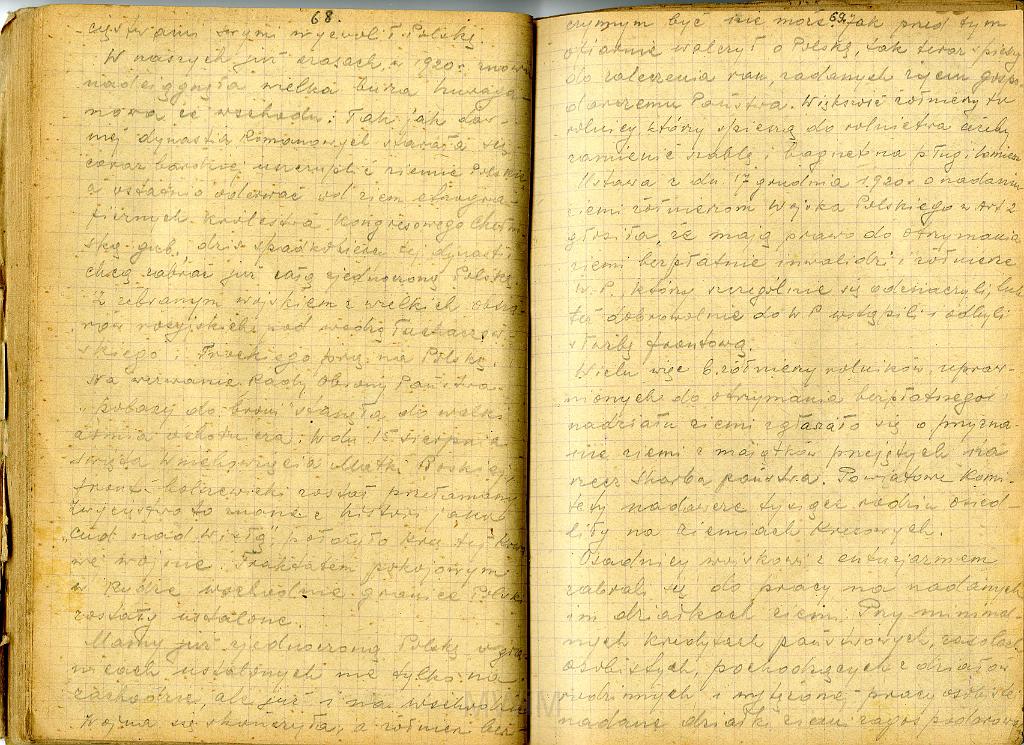 68.
swymi wyzwolił Polskę.
W naszych już czasach, w 1920 r. znowu
nadciągnęła wielka burza huraga-
nowa ze wschodu. Tak jak daw-
niej dynastia Romanowych starała się
coraz bardziej uszczuplić ziemie Polskie
i ostatnio oderwać od ziem etnogra-
ficznych Królestwa Kongresowego Chełm-
ską gub., dziś spadkobiercy tej dynastii
chcą zabrać już całą zjednoczoną Polskę.
Z zebranym wojskiem z wielkich obsza-
rów rosyjskich pod wodzą Tuchaczew-
skiego i Trockiego prą na Polskę.
Na wezwanie Rady Obrony Państwa
do broni" stanęła do walki
armia ochotnicza. W dn. 15 sierpnia
święta Wniebowzięcia Matki Boskiej
front bolszewicki został przełamany
zwycięstwo to znane z historii jako
"cud nad Wisłą", położyło kres tej krwa-
wej wojnie. Traktatem pokojowym
w Rydze wschodnie granice Polski
zostały ustalone.
Mamy już zjednoczoną Polskę w gra-
nicach ustalonych nie tylko na
zachodzie, ale już i na wschodzie
Wojna się skończyła, a żołnierz bez-
69.
czynnym być nie może. Jak przed tym
ofiarnie walczył o Polskę, tak teraz spieszy
do zaleczenia ran, zadanych życiu gospo-
darczemu Państwa. Większość żołnierzy to
rolnicy, którzy spieszą do rolnictwa ażeby
zamienić szablę i bagnet na pług i lemiesz
Ustawa z dn. 17 grudnia 1920 r. o nadaniu
ziemi żołnierzom Wojska Polskiego w Art 2
głosiła, że mają prawo do otrzymania
ziemi bezpłatnie inwalidzi i żołnierze
W.P., którzy szczególnie się odznaczyli, lub
też dobrowolnie do W.P. wstąpili i odbyli
służbę frontową.
Wielu więc b. żołnierzy rolników, upraw-
nionych do otrzymania bezpłatnego
nadziału ziemi zgłaszało się o przyzna-
nie ziemi z majątków przejętych na
rzecz Skarbu państwa. Powiatowe Komi-
tety nadawcze tysiące rodzin osied-
liły na ziemiach Kresowych.
Osadnicy wojskowi z entuzjazmem
zabrali się do pracy na nadanych
im działkach ziemi. Przy minimal-
nych kredytach państwowych, zasobach
osobistych, pochodzących z działów
rodzinnych i wytężonej pracy osobistej
nadane działki ziemi zagospodarowa